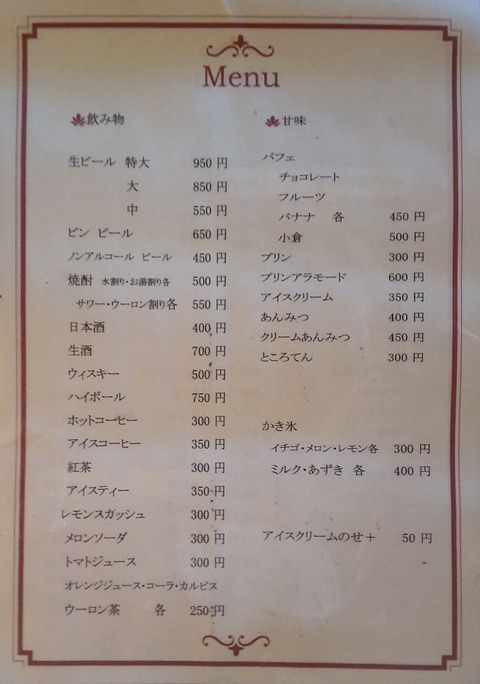 Menu
飲み物
生ビール 特大 950 円
大 850 円
中 550 円
ビン ビール 650 円
ノンアルコール ビール 450 円
焼酎 水割り・お湯割り各 500 円
サワー・ウーロン割り各 550 円
日本酒 400 円
生酒 700 円
ウィスキー 500 円
ハイボール 750 円
ホットコーヒー 300 円
アイスコーヒー 350 円
紅茶 300 円
アイスティー 350 円
レモンスカッシュ 300 円
メロンソーダ 300 円
トマトジュース 300 円
オレンジジュース・コーラ・カルピス
ウーロン茶 各 250 円
甘味
パフェ
チョコレート
フルーツ
バナナ 各 450 円
小倉 500 円
プリン 300 円
プリンアラモード 600 円
アイスクリーム 350 円
あんみつ 400 円
クリームあんみつ 450 円
ところてん 300 円
かき氷
イチゴ・メロン・レモン各 300 円
ミルク・あずき 各 400 円
アイスクリームのせ＋ 50 円